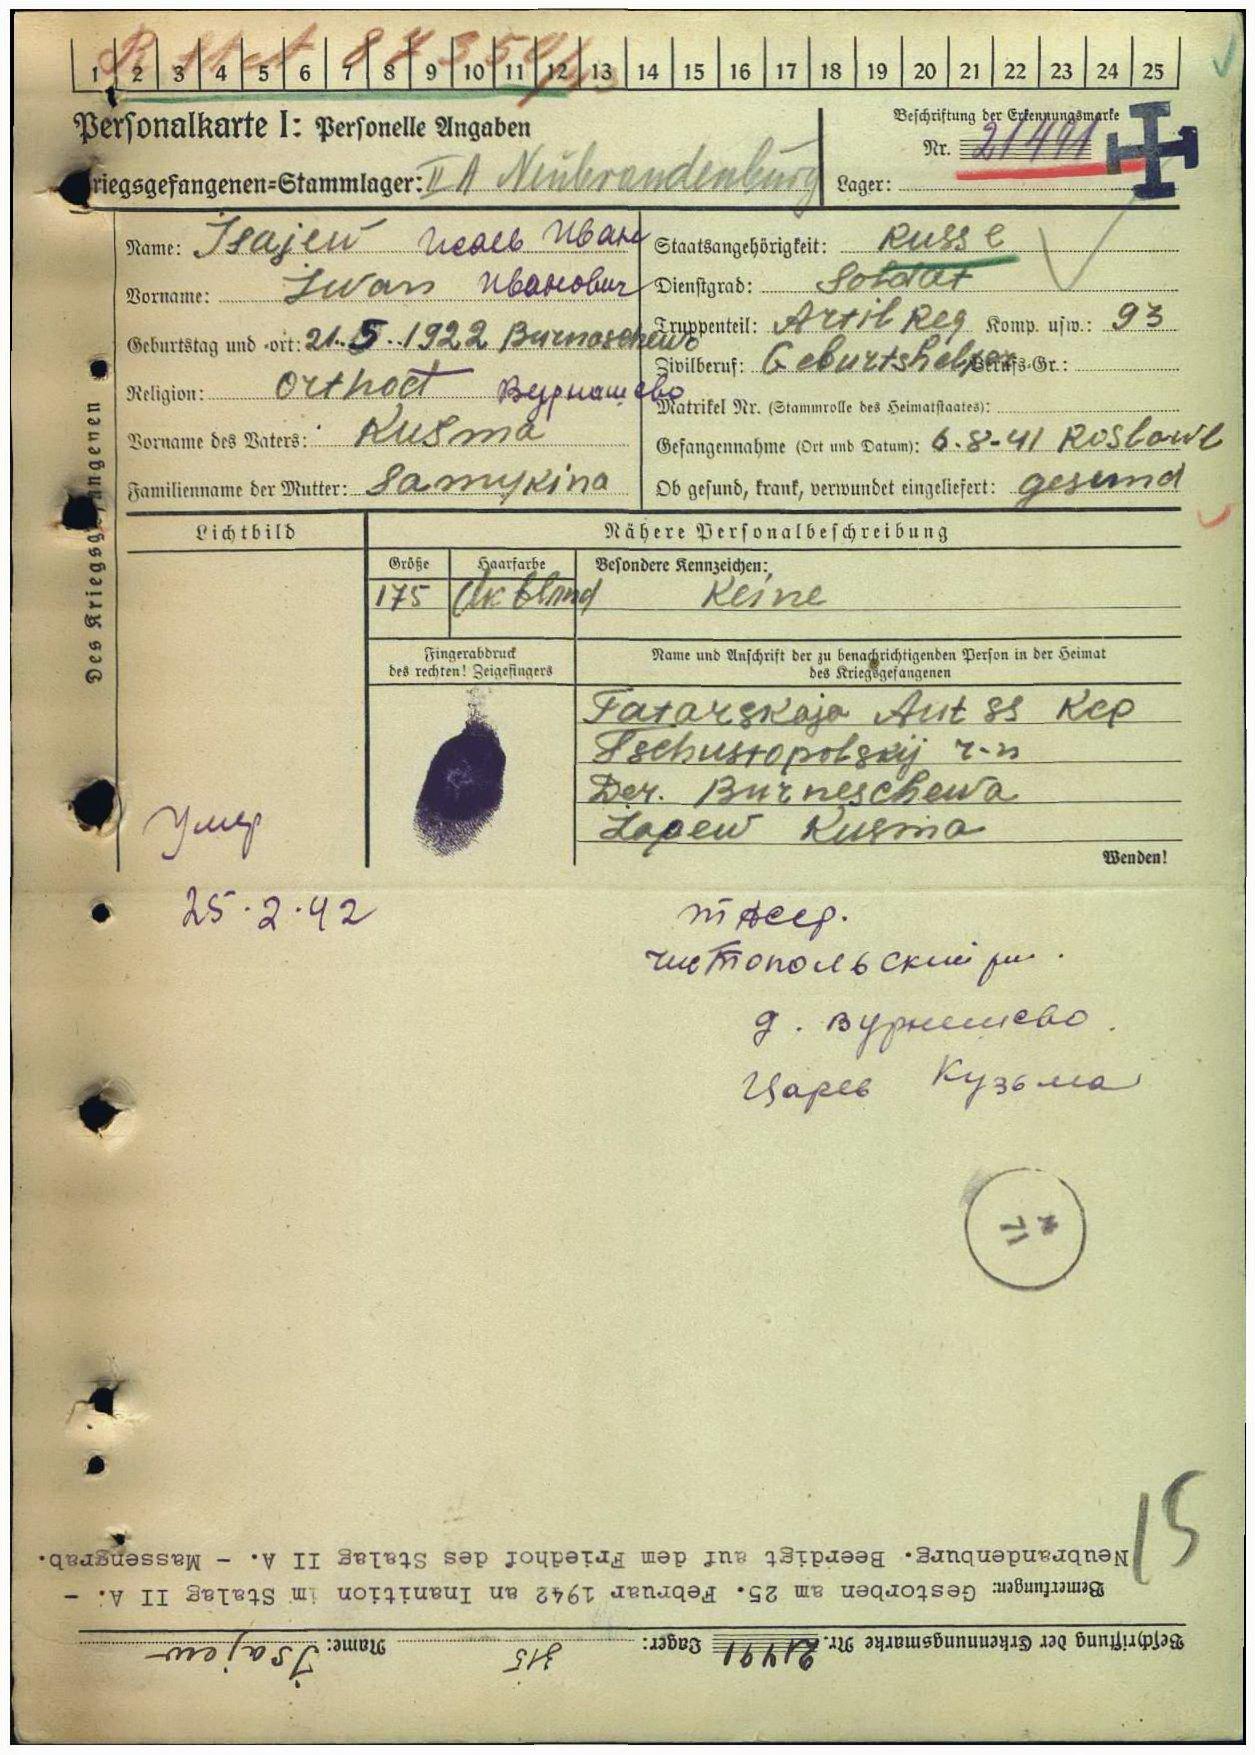 1 2 3 4 5 6 7 8 9 10 11 12 13 14 15 16 17 18 19 20 21 22 23 24 25
Personalkarte I: Personelle Angaben
Kriegsgefangenen-Stammlager: II A Neubrandenburg
Beschriftung der Erkennungsmarke
Nr. 21491
Lager:
Des Kriegsgefangenen
Name: Isajew Исаев Иван
Vorname: Iwan Иванович
Geburtstag und -ort: 21.5.1922 Burnaschewo
Religion: Orthod Бурнашево
Vorname des Vaters: Kusma
Familienname der Mutter: Samykina
Staatsangehörigkeit: Russe
Dienstgrad: Soldat
Truppenteil: Artil Reg Komp. usw.: 93
Zivilberuf: Geburtshelfer Berufs-Gr.:
Matrikel Nr. (Stammrolle des Heimatstaates):
Gefangennahme (Ort und Datum): 6.8-41 Roslawl
Ob gesund, krank, verwundet eingeliefert: gesund
Lichtbild
Nähere Personalbeschreibung
Größe Haarfarbe Besondere Kennzeichen:
175 dk blond Keine
Fingerabdruck
des rechten! Zeigefingers
Name und Anschrift der zu benachrichtigenden Person in der Heimat
des Kriegsgefangenen
Tatarskaja Aut SS Rep
Tschustopolskij r-n
Der. Burneschewa
Zapew Kusma
Wenden!
Умер
25.2.42
Тасср.
Чистопольский рн.
д. Вурнешево.
Царев Кузьма
71
15
Bemerkungen: Gestorben am 25. Februar 1942 an Inanition im Stalag II A. -
Neubrandenburg. Beerdigt auf dem Friedhof des Stalag II A. - Massengrab.
Beschriftung der Erkennungsmarke Nr. 21491 Lager: 315 Name: Isajew